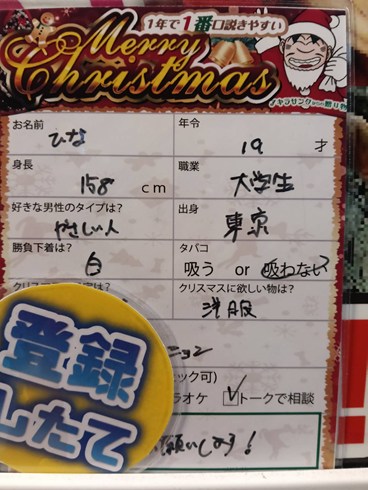 1年で1番口説きやすい
Merry
Christmas
お名前
ひな
年令
19 才
身長
158 cm
職業
大学生
好きな男性のタイプは?
やさしい人
出身
東京
勝負下着は?
白
タバコ
吸う or 吸わない
クリス
クリスマスに欲しい物は?
洋服
ョン
ック可)
ラオケ ☑トークで相談
願いします!
登録
したて